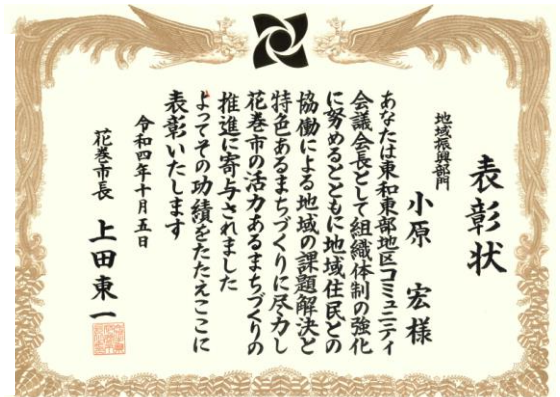 表彰状
地域振興部門
小原 宏様
あなたは東和東部地区コミュニティ
会議会長として組織体制の強化
に努めるとともに地域住民との
協働による地域の課題解決と
特色あるまちづくりに尽力し
花巻市の活力あるまちづくりの
推進に寄与されました
よってその功績をたたえここに
表彰いたします
令和四年十月五日
花巻市長 上田東一